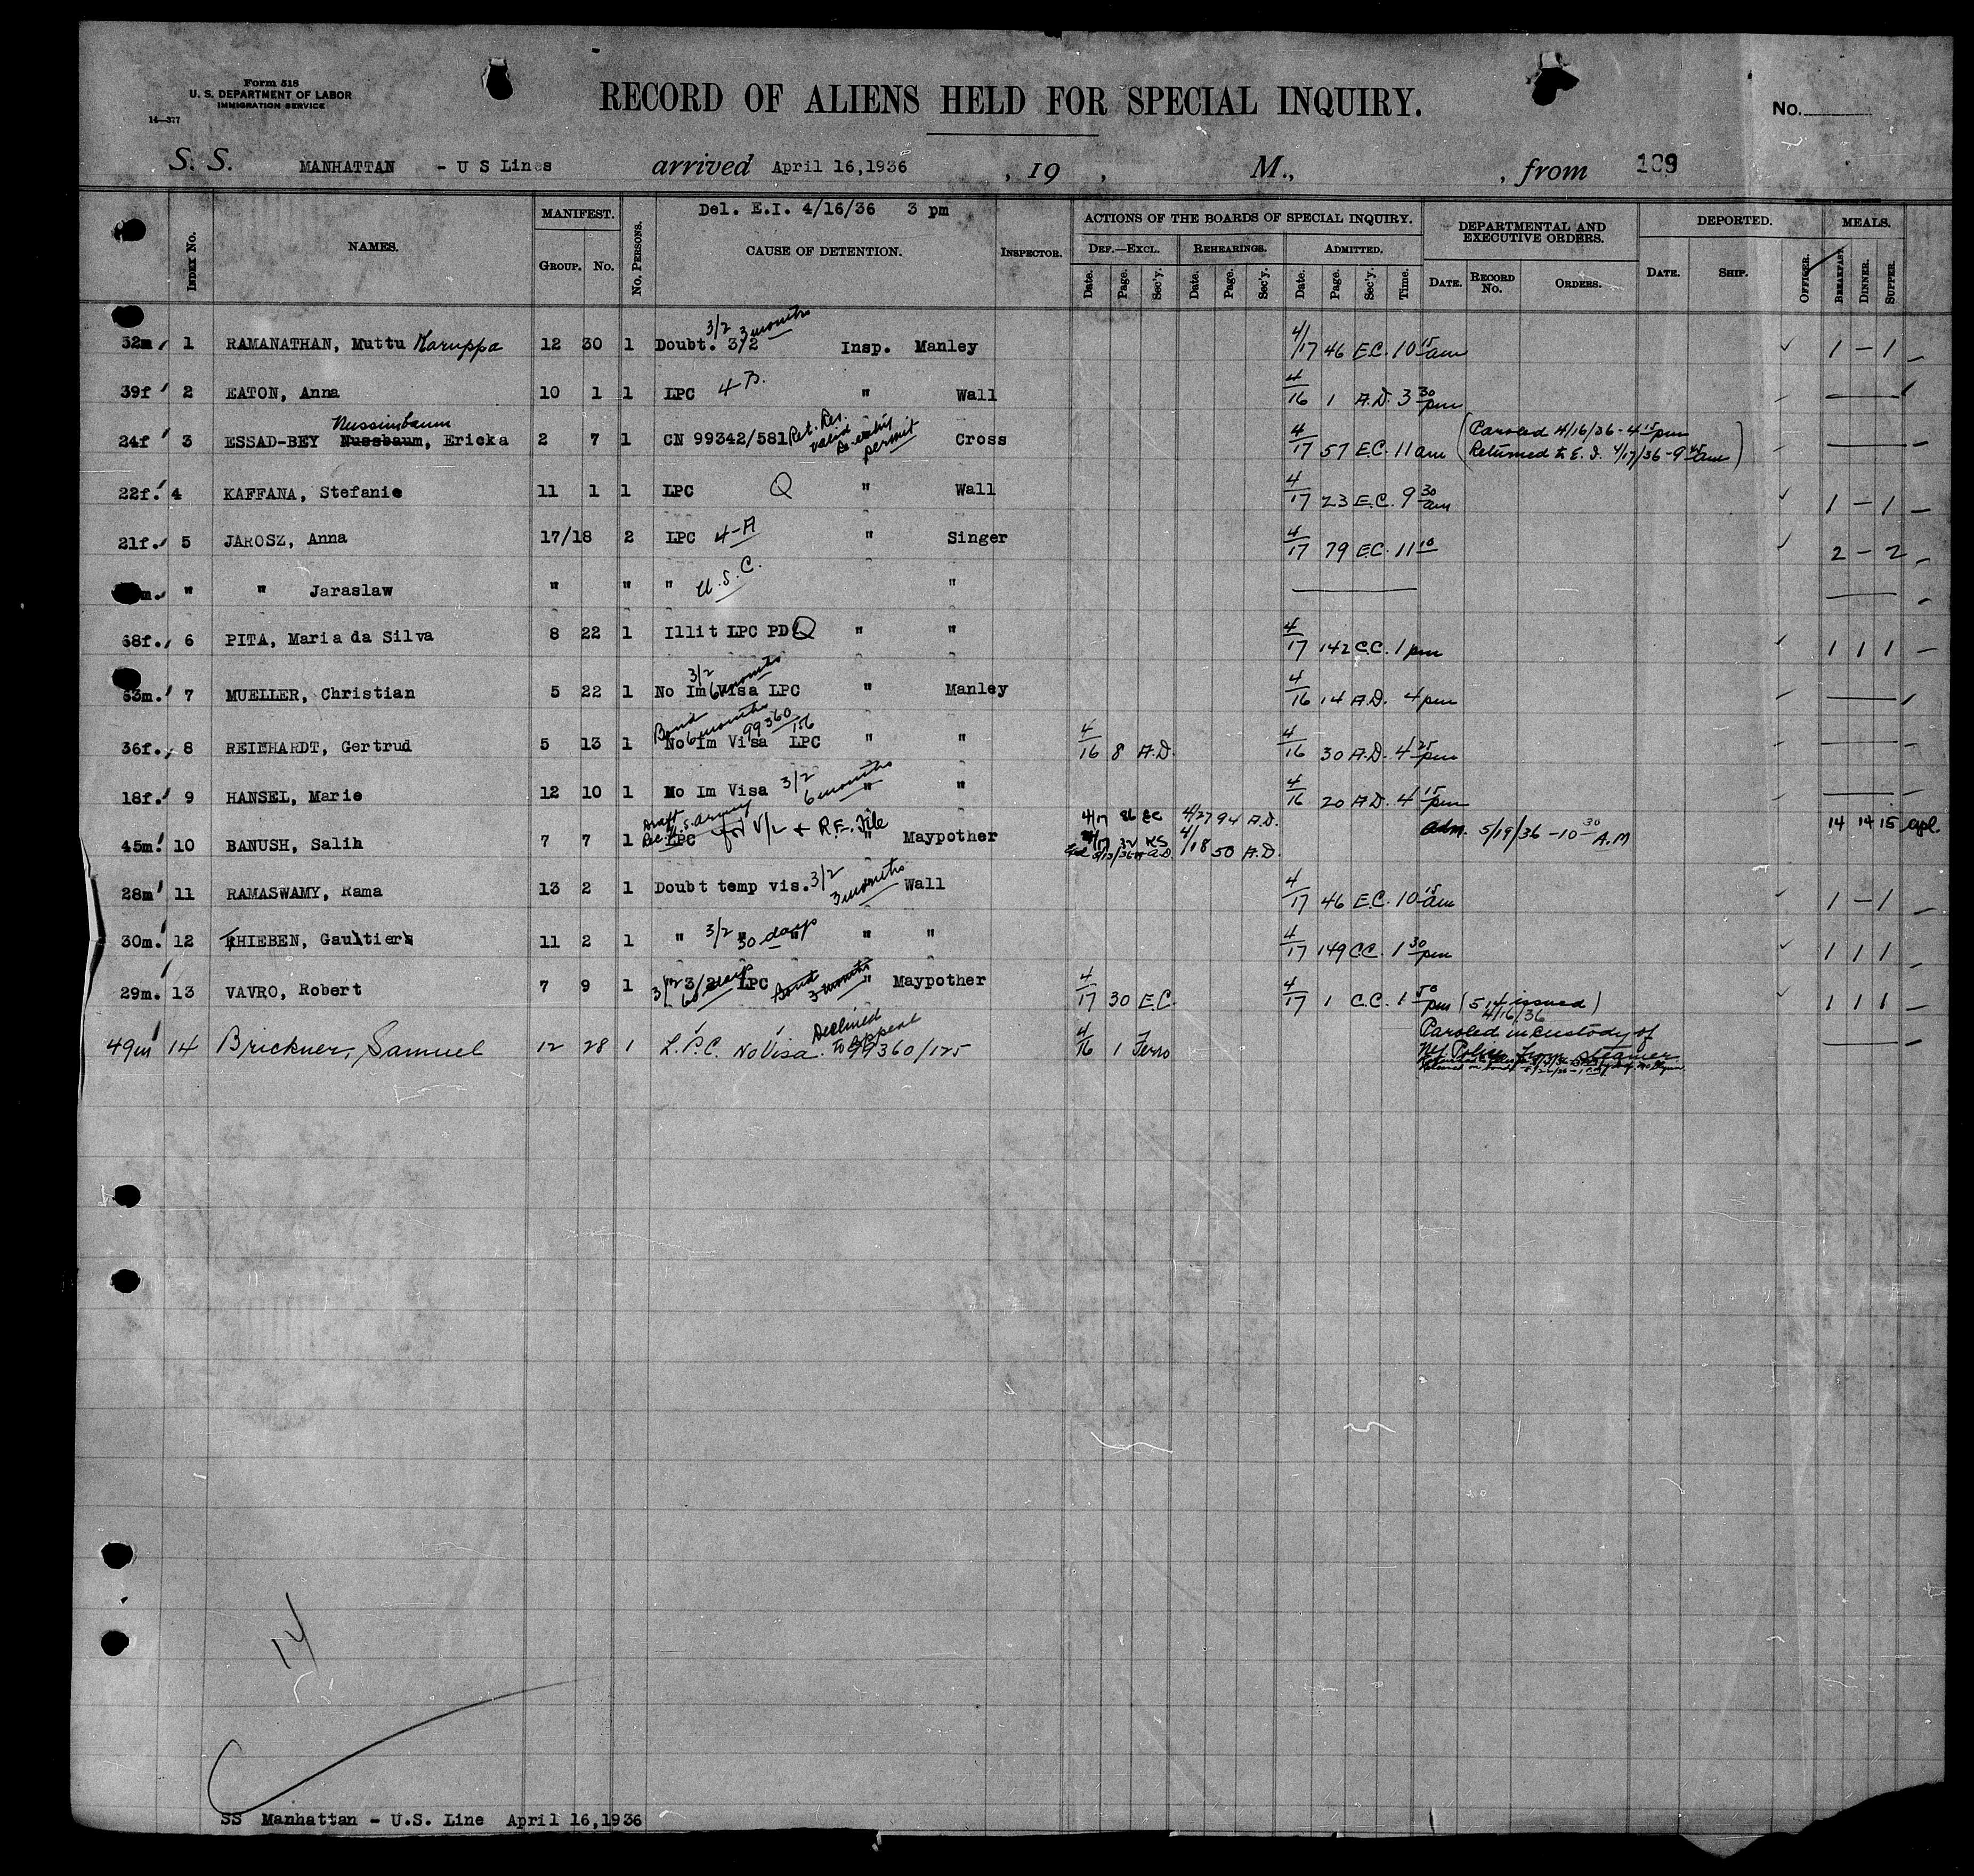 Form 518
U. S. DEPARTMENT OF LABOR
IMMIGRATION SERVICE
14—377
RECORD OF ALIENS HELD FOR SPECIAL INQUIRY.
No.
S. S. MANHATTAN - U S Lines arrived April 16,1936 , 19 , M., , from 109
Del. E.I. 4/16/36 3 pm
INDEX No. NAMES. MANIFEST. GROUP. No. No. PERSONS. CAUSE OF DETENTION. INSPECTOR. ACTIONS OF THE BOARDS OF SPECIAL INQUIRY. DEF.—EXCL. Date. Page. Sec'y. REHEARINGS. Date. Page. Sec'y. ADMITTED. Date. Page. Sec'y. Time. DEPARTMENTAL AND EXECUTIVE ORDERS. DATE. RECORD No. ORDERS. DEPORTED. DATE. SHIP. OFFICER. MEALS. BREAKFAST. DINNER. SUPPER.
3/2 3 months
32m 1 RAMANATHAN, Muttu Karuppa 12 30 1 Doubt. 3/2 Insp. Manley 4/17 46 E.C. 10 15 am 1 — 1
39f 2 EATON, Anna 10 1 1 LPC 4-B. " Wall 4/16 1 A.D. 3 30 pm
Nussimbaum
24f 3 ESSAD-BEY Nussbaum, Ericka 2 7 1 CN 99342/581 Ret. Res. valid Re-entry permit Cross 4/17 57 E.C. 11 am (Paroled 4/16/36 - 4 15 pm
Returned to E. I. 4/17/36 - 9 45 am)
22f. 4 KAFFANA, Stefanie 11 1 1 LPC Q " Wall 4/17 23 E.C. 9 30 am 1 — 1
21f. 5 JAROSZ, Anna 17/18 2 LPC 4-A " Singer 4/17 79 E.C. 11 10 2 — 2
m. " " Jaraslaw " " " U.S.C. "
68f. 6 PITA, Maria da Silva 8 22 1 Illit LPC PD Q " " 4/17 142 C.C. 1 pm 1 1 1
3/2 6 months
53m. 7 MUELLER, Christian 5 22 1 No Im Visa LPC " Manley 4/16 14 A.D. 4 pm
Bond 6 months 99360/156
36f. 8 REINHARDT, Gertrud 5 13 1 No Im Visa LPC " " 4/16 8 A.D. 4/16 30 A.D. 4 25 pm
18f. 9 HANSEL, Marie 12 10 1 No Im Visa 3/2 6 months " " 4/16 20 A.D. 4 15 pm
45m. 10 BANUSH, Salih 7 7 1 LPC for V/L + R.E. File " Maypother 4/17 86 EC 4/27 94 A.D. Adm. 5/19/36 - 10 30 A.M 14 14 15
4/18 50 A.D.
28m 11 RAMASWAMY, Rama 13 2 1 Doubt temp vis. 3/2 3 months Wall 4/17 46 E.C. 10 15 am 1 — 1
30m. 12 THIEBEN, Gaultier 11 2 1 " 3/2 " 30 days " " " 4/17 149 C.C. 1 30 pm 1 1 1
29m. 13 VAVRO, Robert 7 9 1 3/2 60 days LPC Bond 3 months " Maypother 4/17 30 E.C. 4/17 1 C.C. 1 50 pm (514 issued) 1 1 1
4/16/36
49m 14 Brickner, Samuel 12 28 1 L.P.C. No Visa. Declined to Appeal 99360/125 4/16 1 Ferro Paroled in custody of
NY Police from steamer
14
SS Manhattan - U.S. Line April 16,1936